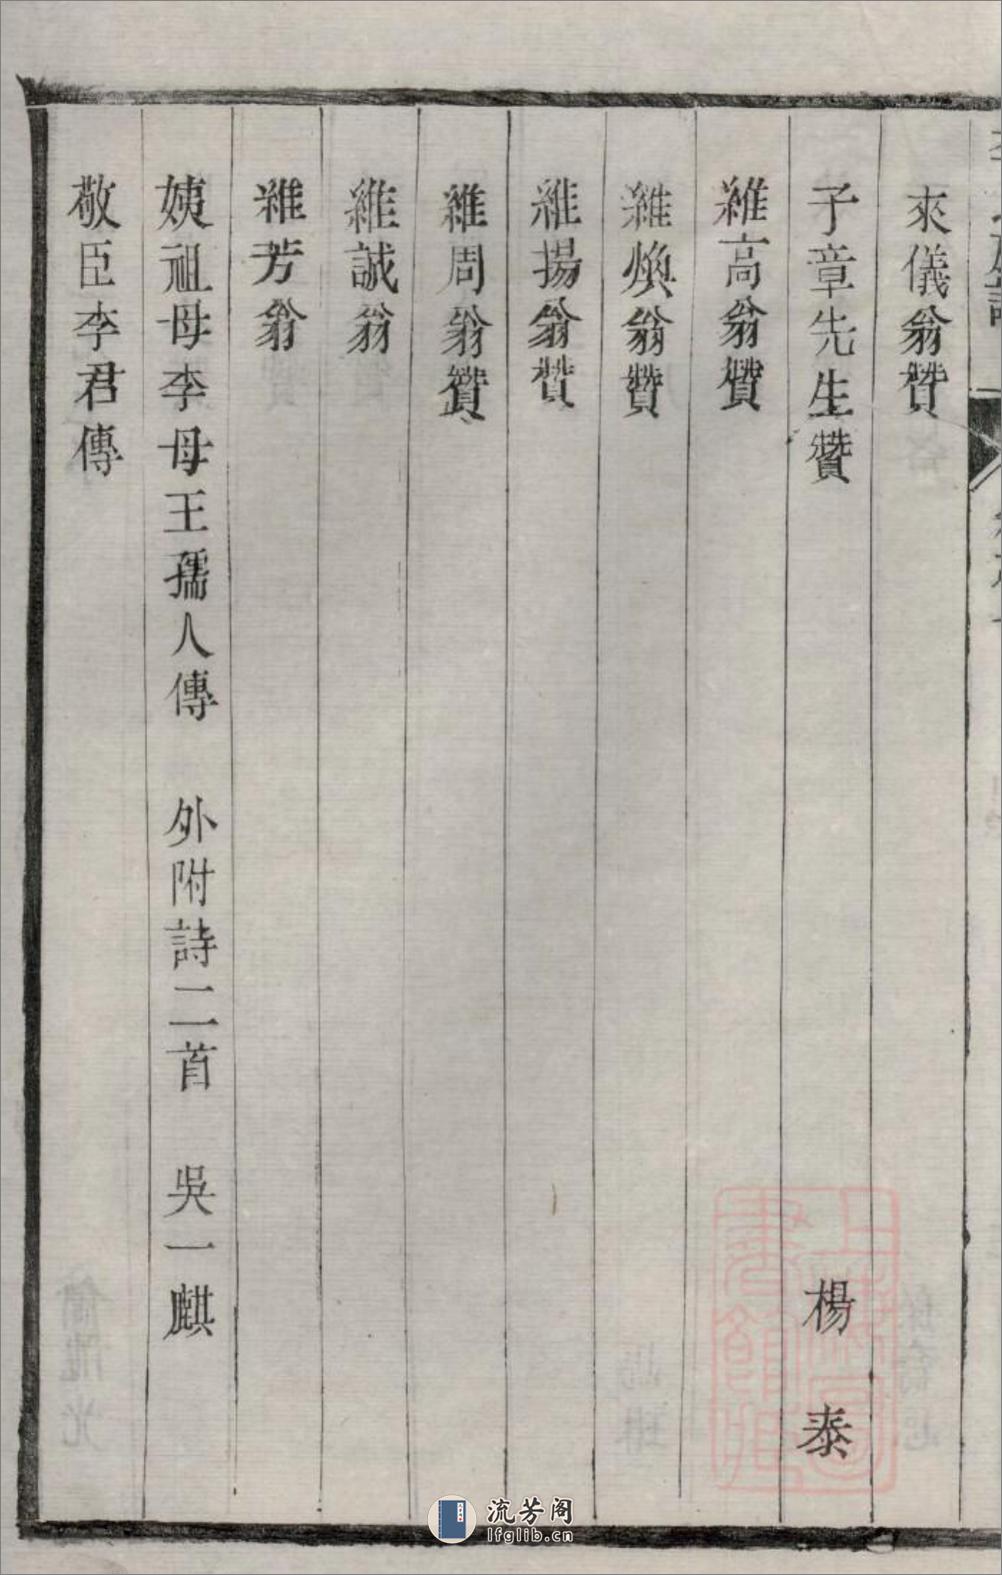 來儀翁贊
子章先生贊 楊泰
維高翁贊
維煥翁贊
維揚翁贊
維周翁贊
維誠翁
維芳翁
姨祖母李母王孺人傳 外附詩二首 吳一麒
敬臣李君傳
流芳阁
lfglib.cn